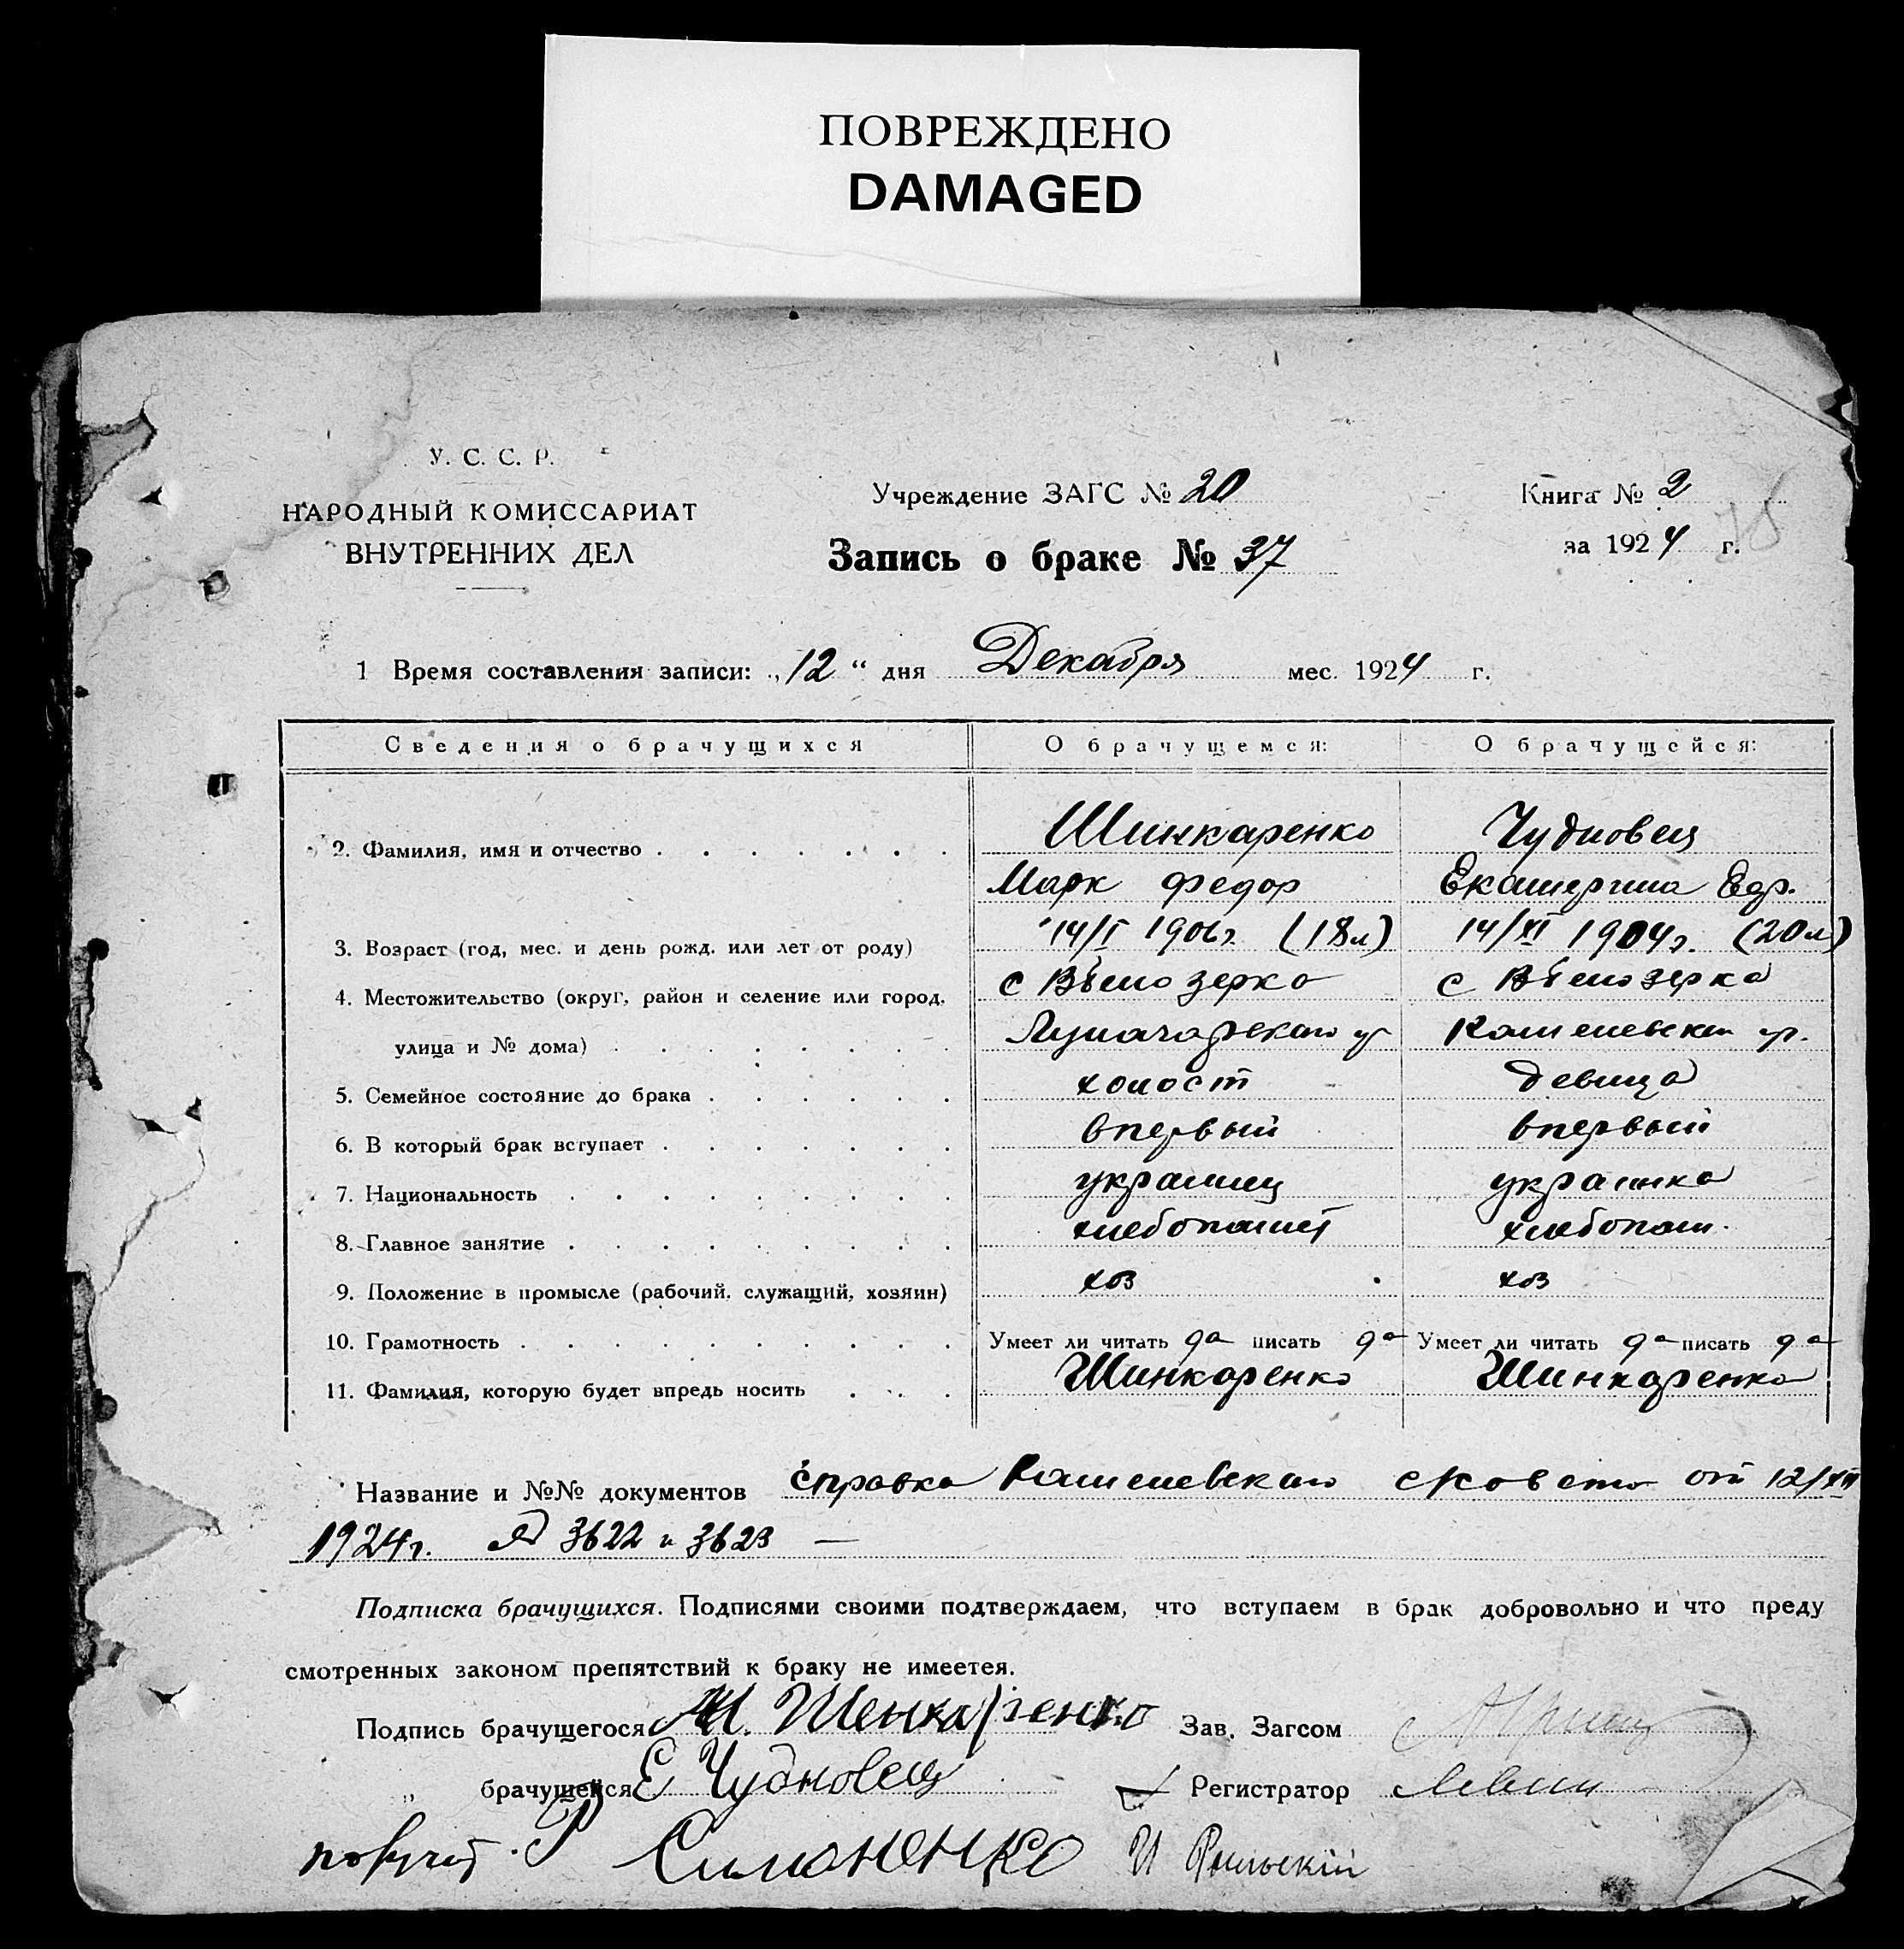 ПОВРЕЖДЕНО
DAMAGED
У. С. С. Р.
НАРОДНЫЙ КОМИССАРИАТ
ВНУТРЕННИХ ДЕЛ
Учреждение ЗАГС № 20
Запись о браке № 37
Книга № 2
за 1924 г.
78
1 Время составления записи: „12“ дня Декабря мес. 1924 г.
Сведения о брачущихся О брачущемся: О брачущейся:
2. Фамилия, имя и отчество Шинкаренко Чудновец
Марк Федор Екатерина Едр.
3. Возраст (год, мес. и день рожд. или лет от роду) 14/I 1906г. (18л) 14/XI 1904г. (20л)
4. Местожительство (округ, район и селение или город, с Вѣлозерка с Вѣлозерка
улица и № дома)
5. Семейное состояние до брака холост девица
6. В который брак вступает впервый впервый
7. Национальность украинец украинка
8. Главное занятие хлебопашец хлебопаш.
9. Положение в промысле (рабочий, служащий, хозяин) хоз хоз
10. Грамотность Умеет ли читать да писать да Умеет ли читать да писать да
11. Фамилия, которую будет впредь носить Шинкаренко Шинкаренко
Название и №№ документов справка от 12/XII
1924г. № 3622 и 3623 —
Подписка брачущихся. Подписями своими подтверждаем, что вступаем в брак добровольно и что преду
смотренных законом препятствий к браку не имеетея.
Подпись брачущегося М. Шенкаренко Зав. Загсом
„ брачущейся Е Чудновец Регистратор Левин
Симоненко И Рыльскій